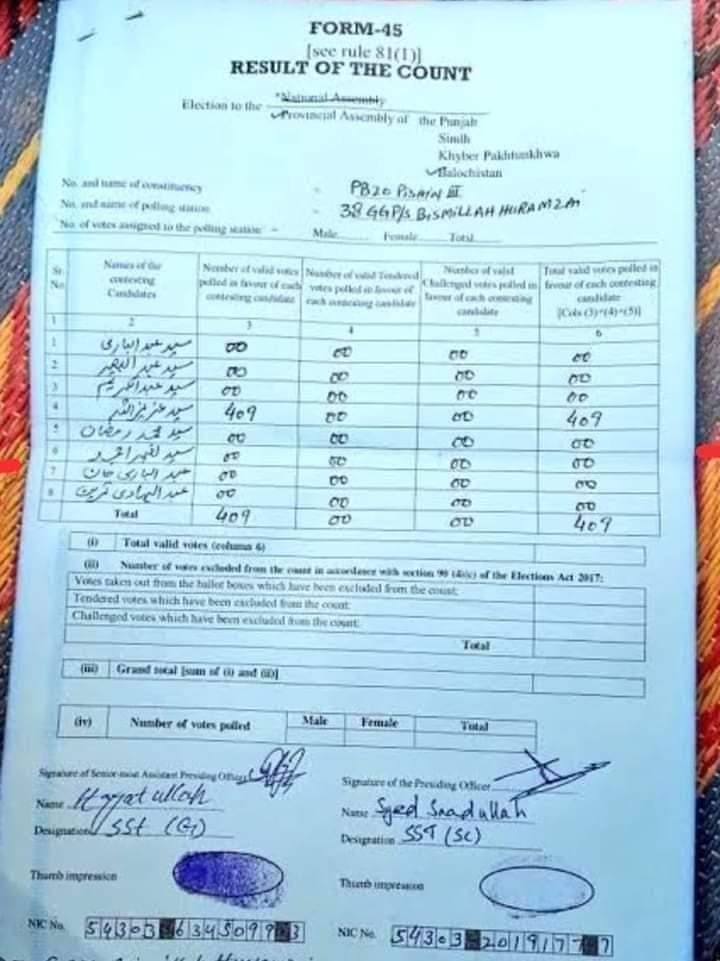 FORM-45
[see rule 81(1)]
RESULT OF THE COUNT
Election to the *National Assembly
Provincial Assembly of the Punjab
Sindh
Khyber Pakhtunkhwa
Balochistan
No. and name of constituency - PB20 PISHIN III
No. and name of polling station - 38 GGP/S BISMILLAH
No. of votes assigned to the polling station - Male Female Total
Sr. No Names of the contesting Candidates Number of valid votes polled in favour of each contesting candidate Number of valid Tendered votes polled in favour of each contesting candidate Number of valid Challenged votes polled in favour of each contesting candidate Total valid votes polled in favour of each contesting candidate [Cols (3)+(4)+(5)]
1 2 3 4 5 6
1 سید عبدالباری 00 00 00 00
2 سید عبد 00 00 00 00
3 سید عبدالکریم 00 00 00 00
4 سید عزیز اللہ 409 00 00 409
5 سید محمد رمضان 00 00 00 00
6 سید 00 00 00 00
7 عبد الباری خان 00 00 00 00
8 عبد الہادی ترین 00 00 00 00
Total 409 00 00 409
(i) Total valid votes (column 6)
(ii) Number of votes excluded from the count in accordance with section 90 of the Elections Act 2017:
Votes taken out from the ballot boxes which have been excluded from the count:
Tendered votes which have been excluded from the count:
Challenged votes which have been excluded from the count:
Total
(iii) Grand total [sum of (i) and (ii)]
(iv) Number of votes polled Male Female Total
Signature of Senior-most Assistant Presiding Officer
Name Hayat ullah
Designation SSt (G)
Thumb impression
NIC No. 54303 6345099 3
Signature of the Presiding Officer
Name Syed Saadullah
Designation SST (SC)
Thumb impression
NIC No. 54303 2019177 7